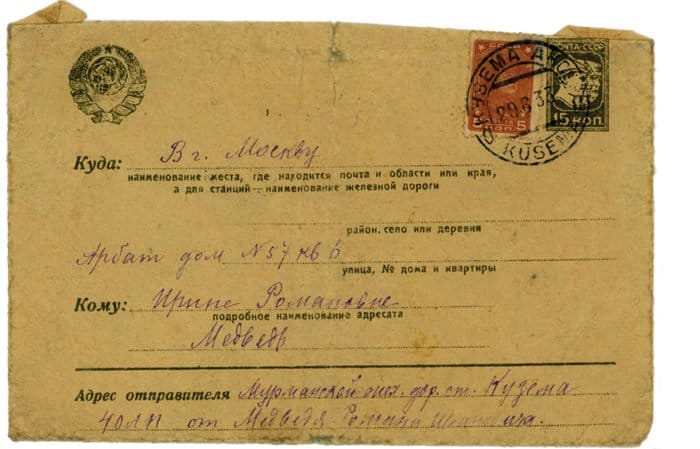 ПОЧТА СССР
15 КОП.
5 КОП. 5
КУЗЕМА
29.6.33
KUSEMA
Куда: В г. Москву
наименование места, где находится почта и области или края,
а для станций—наименование железной дороги
район, село или деревня
Арбат дом N57 кв 6
улица, № дома и квартиры
Кому: Ирине Романовне
подробное наименование адресата
Медведь
Адрес отправителя Мурманской жел. дор. ст. Кузема
4 ОЛП от Медведя Романа